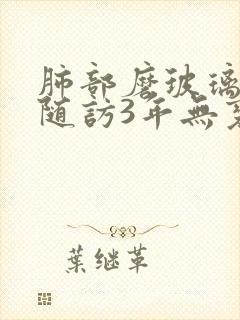 肺部磨玻璃
随訪3年無
葉继革